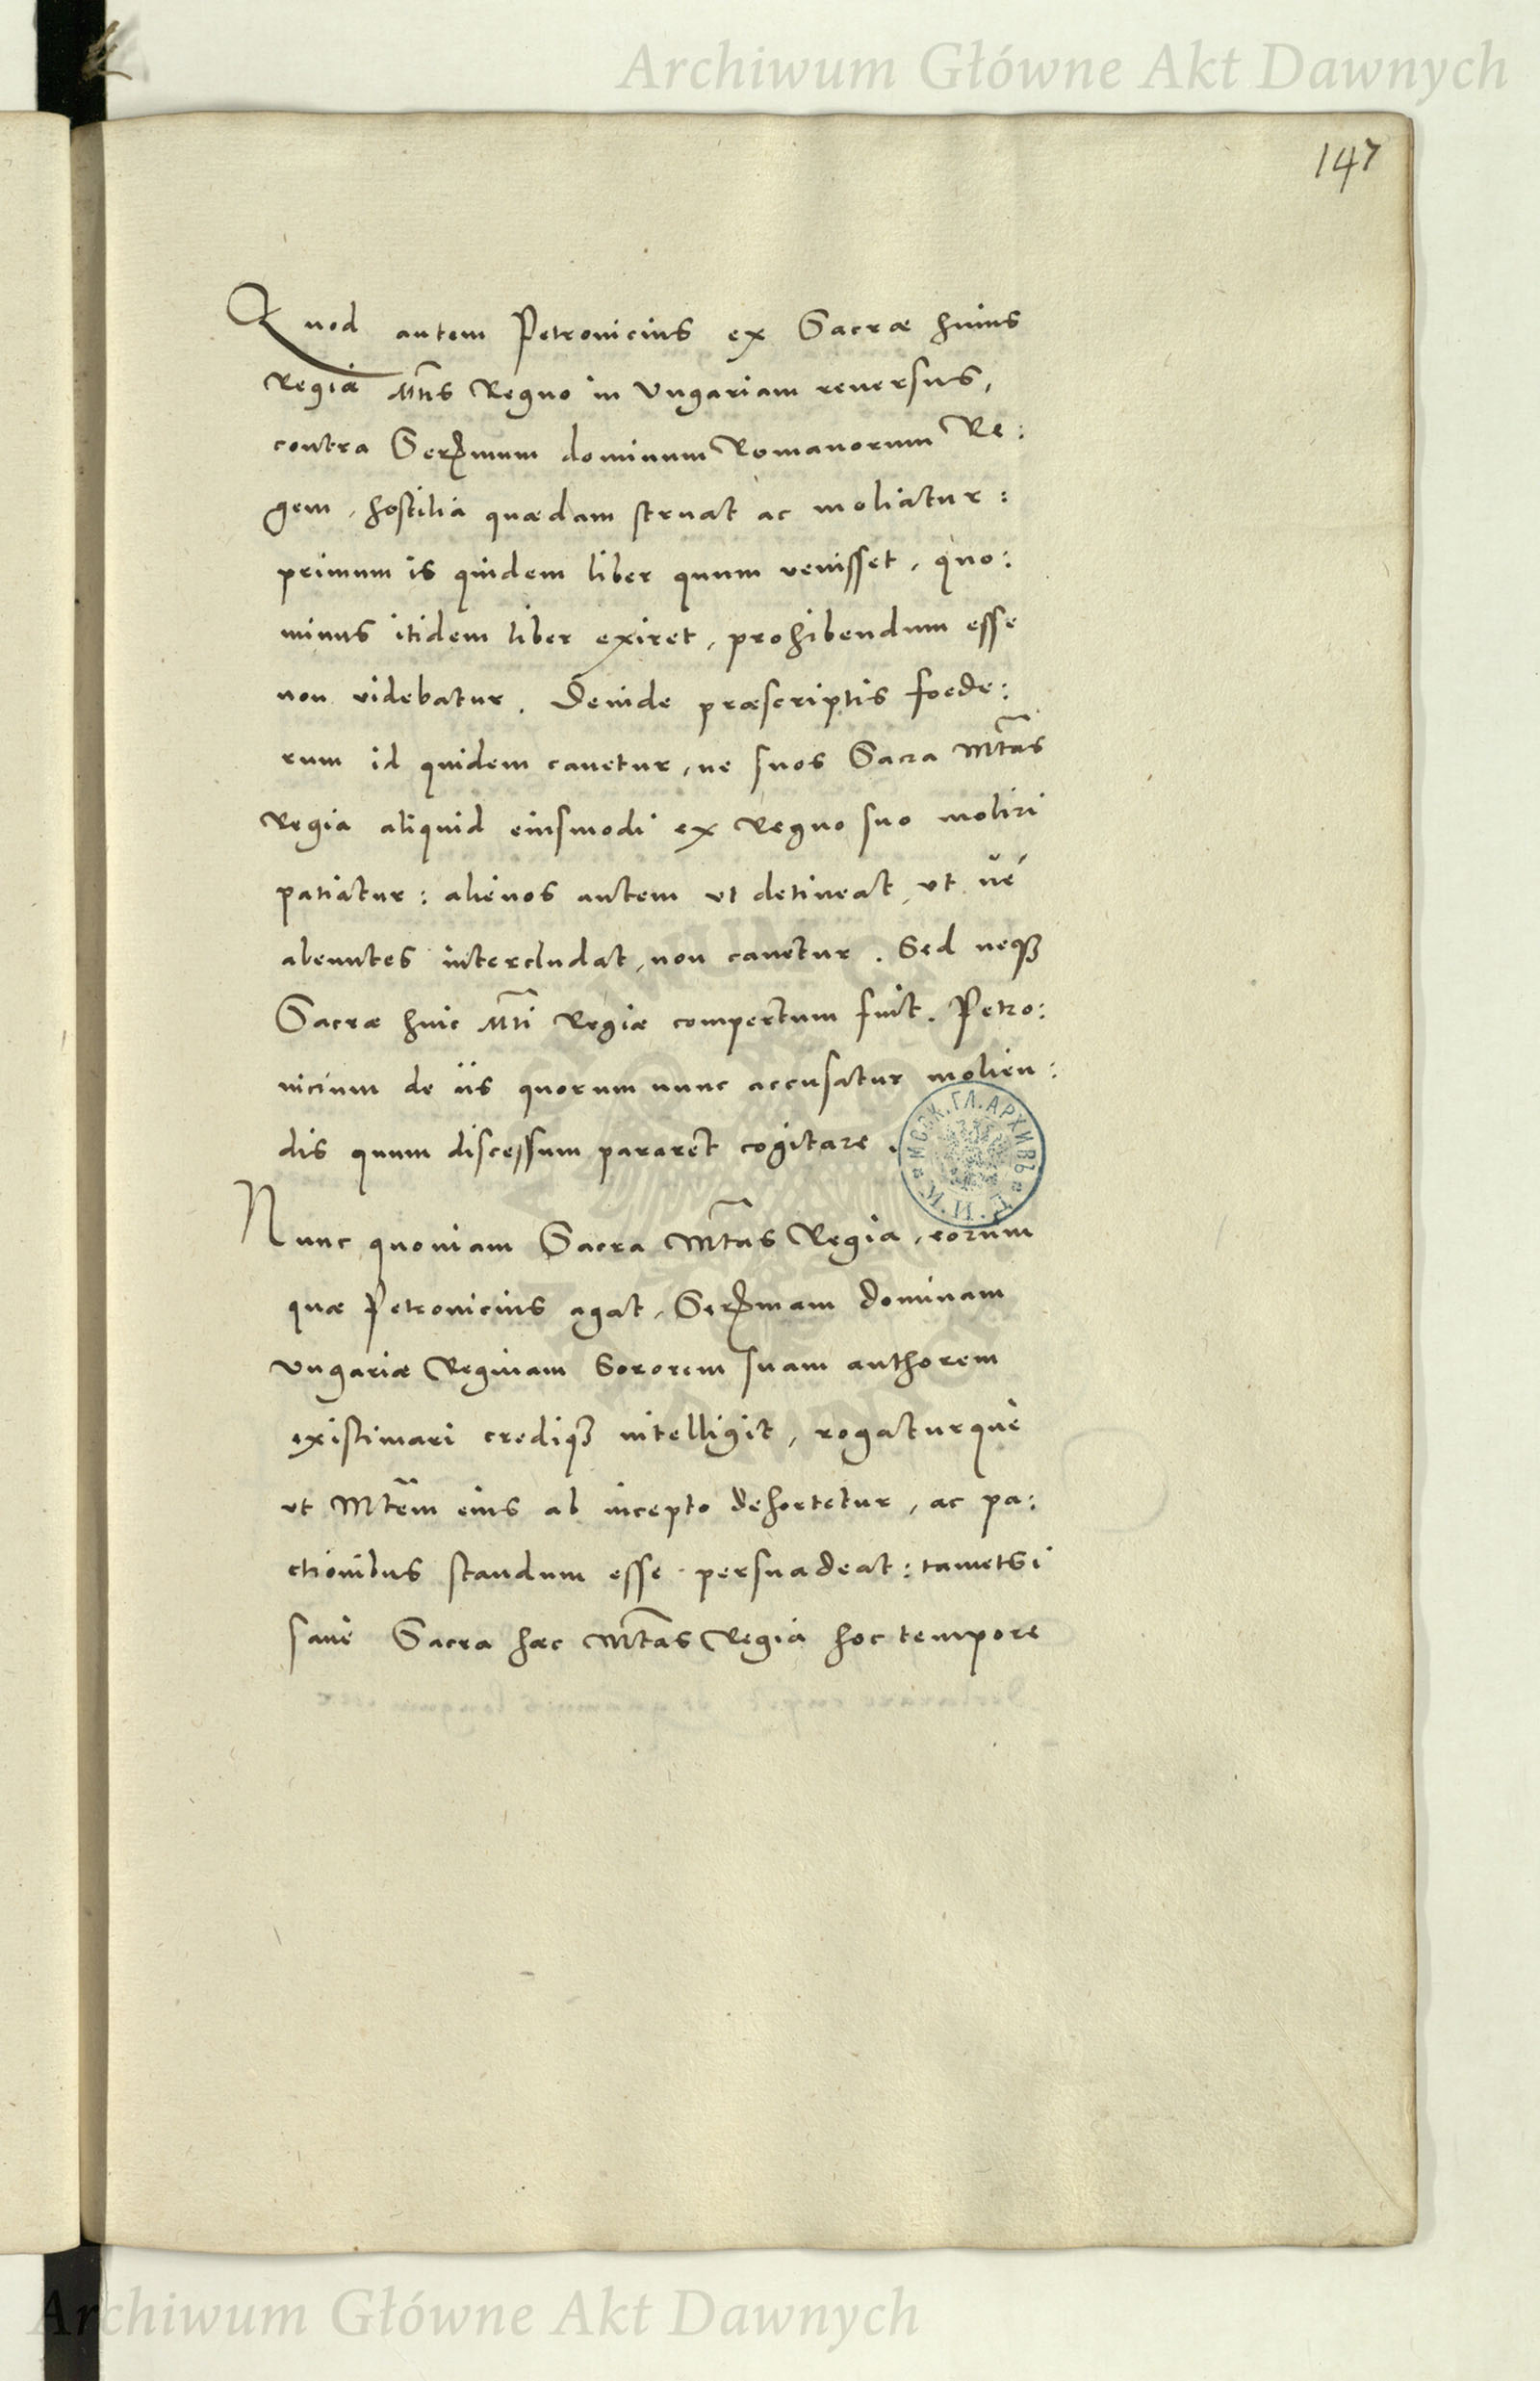 Archiwum Główne Akt Dawnych
147
Quod autem Petrovicius ex Sacræ huius
Regiæ Mtis Regno in Vngariam reuersus,
contra Serenmum dominum Romanorum Re:
gem, hostilia quædam struat ac moliatur:
primum is quidem liber quum venisset, quo:
minus itidem liber exiret, prohibendum esse
non videbatur. Deinde præscriptis foede:
rum id quidem cauetur, ne suos Sacra Mtas
Regia aliquid eiusmodi ex Regno suo moliri
patiatur: alienos autem vt detineat, vt ve
abeuntes intercludat, non cauetur. Sed neqꝫ
Sacræ huic Mti Regiæ compertum fuit. Petro:
uicium de iis quorum nunc accusatur molien:
dis quum discessum pararet cogitare.
МОСК.ГЛ.АРХИВЪ
М.И.Д.
Nunc quoniam Sacra Mtas Regia, eorum
quæ Petrouicius agat, Serenmam dominam
Vngariæ Reginam Sororem suam authorem
existimari crediqꝫ intelligit, rogaturquè
vt Mtem eius ab incepto dehortetur, ac pa:
ctionibus standum esse persuadeat: tametsi
sanè Sacra hæc Mtas Regia hoc tempore
Archiwum Główne Akt Dawnych